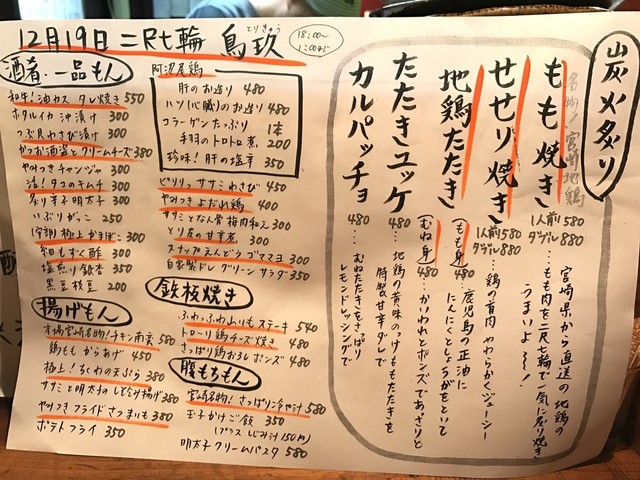 12月19日 二尺七輪 鳥玖
とりきゅう
18:00〜
1:00まで
酒肴・一品もん
和牛!油カス タレ焼き 550
ホタルイカ沖漬け 300
つぶ貝わさび漬け 300
かつお酒盗とクリームチーズ 380
やみつきチャンジャ 300
活!タコのキムチ 300
炙り辛子明太子 300
いぶりがっこ 250
極上かまぼこ 300
糸もずく酢 300
塩煎り銀杏 350
黒豆枝豆 200
揚げもん
本場宮崎名物!チキン南蛮 580
鶏もも からあげ 450
極上!ちくわの天ぷら 380
ササミと明太子のしそ包み揚げ 380
やみつきフライドさつまいも 380
ポテトフライ 350
阿波尾鶏
肝のお造り 480
ハツ(心臓)のお造り 480
コラーゲンたっぷり 1本
手羽のトロトロ煮 200
珍味!肝の塩辛 350
ピリリっササミわさび 450
やみつきよだれ鶏 400
ササミとなん骨梅肉和え 300
とり皮の甘辛煮 300
スナップえんどうゴママヨ 300
自家製ドレ グリーンサラダ 350
鉄板焼き
ふわっふわ山いもステーキ 540
トローリ鶏チーズ焼き 480
さっぱり鶏おろしポンズ 480
腹もちもん
宮崎名物!さっぱり冷や汁 580
玉子かけご飯 350
(プラス しじみ汁150円)
明太子クリームパスタ 580
炭火炙り
名物!宮崎地鶏
もも焼き
1人前 580
ダブル 880
宮崎県から直送の地鶏の
もも肉を二尺七輪で一気に炙り焼き
うまいよ〜!
せせり焼き
1人前 580
ダブル 880
鶏の首肉 やわらかくジューシー
地鶏たたき
(もも身) 480
鹿児島の正油に
にんにくとしょうがをといて
(むね身) 480
かいわれとポンズであっさりと
たたきユッケ
480
地鶏の黄味のっけ ももたたきを
特製甘辛ダレで
カルパッチョ
480
むねたたきをさっぱり
レモンドレッシングで